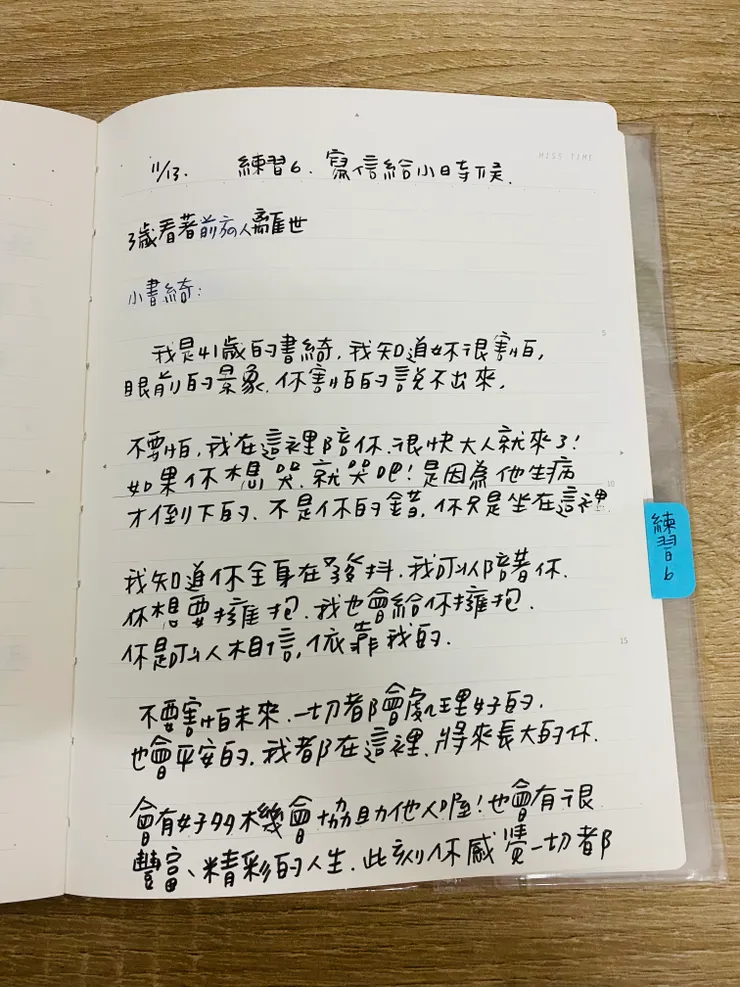 MISS TIME
11/13. 練習6. 寫信給小時候.
3歲看著前方人離世
小書綺:
我是41歲的書綺,我知道妳很害怕,
眼前的景象.你害怕的說不出來,
5
不要怕,我在這裡陪你.很快大人就來了!
如果你想哭.就哭吧!是因為他生病
10
才倒下的.不是你的錯,你只是坐在這裡.
我知道你全身在發抖.我可以陪著你.
你想要擁抱.我也會給你擁抱.
你是可以相信,依靠我的.
15
不要害怕未來.一切都會處理好的.
也會平安的.我都在這裡.將來長大的你.
會有好多機會協助他人喔!也會有很
豐富、精彩的人生.此刻你感覺一切都
練習6